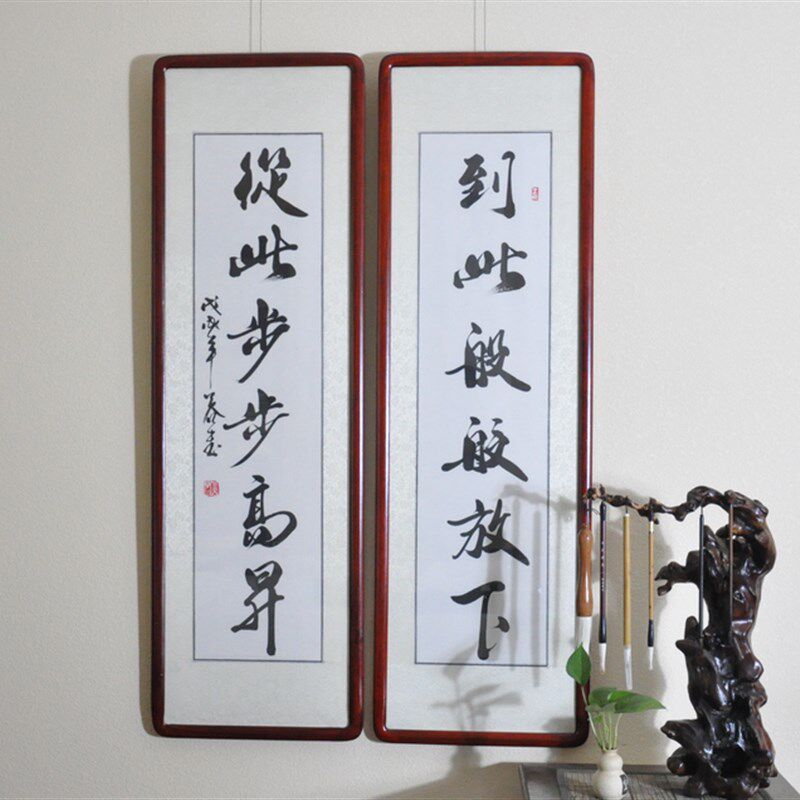 到此般般放下
從此步步高昇
戊戌年